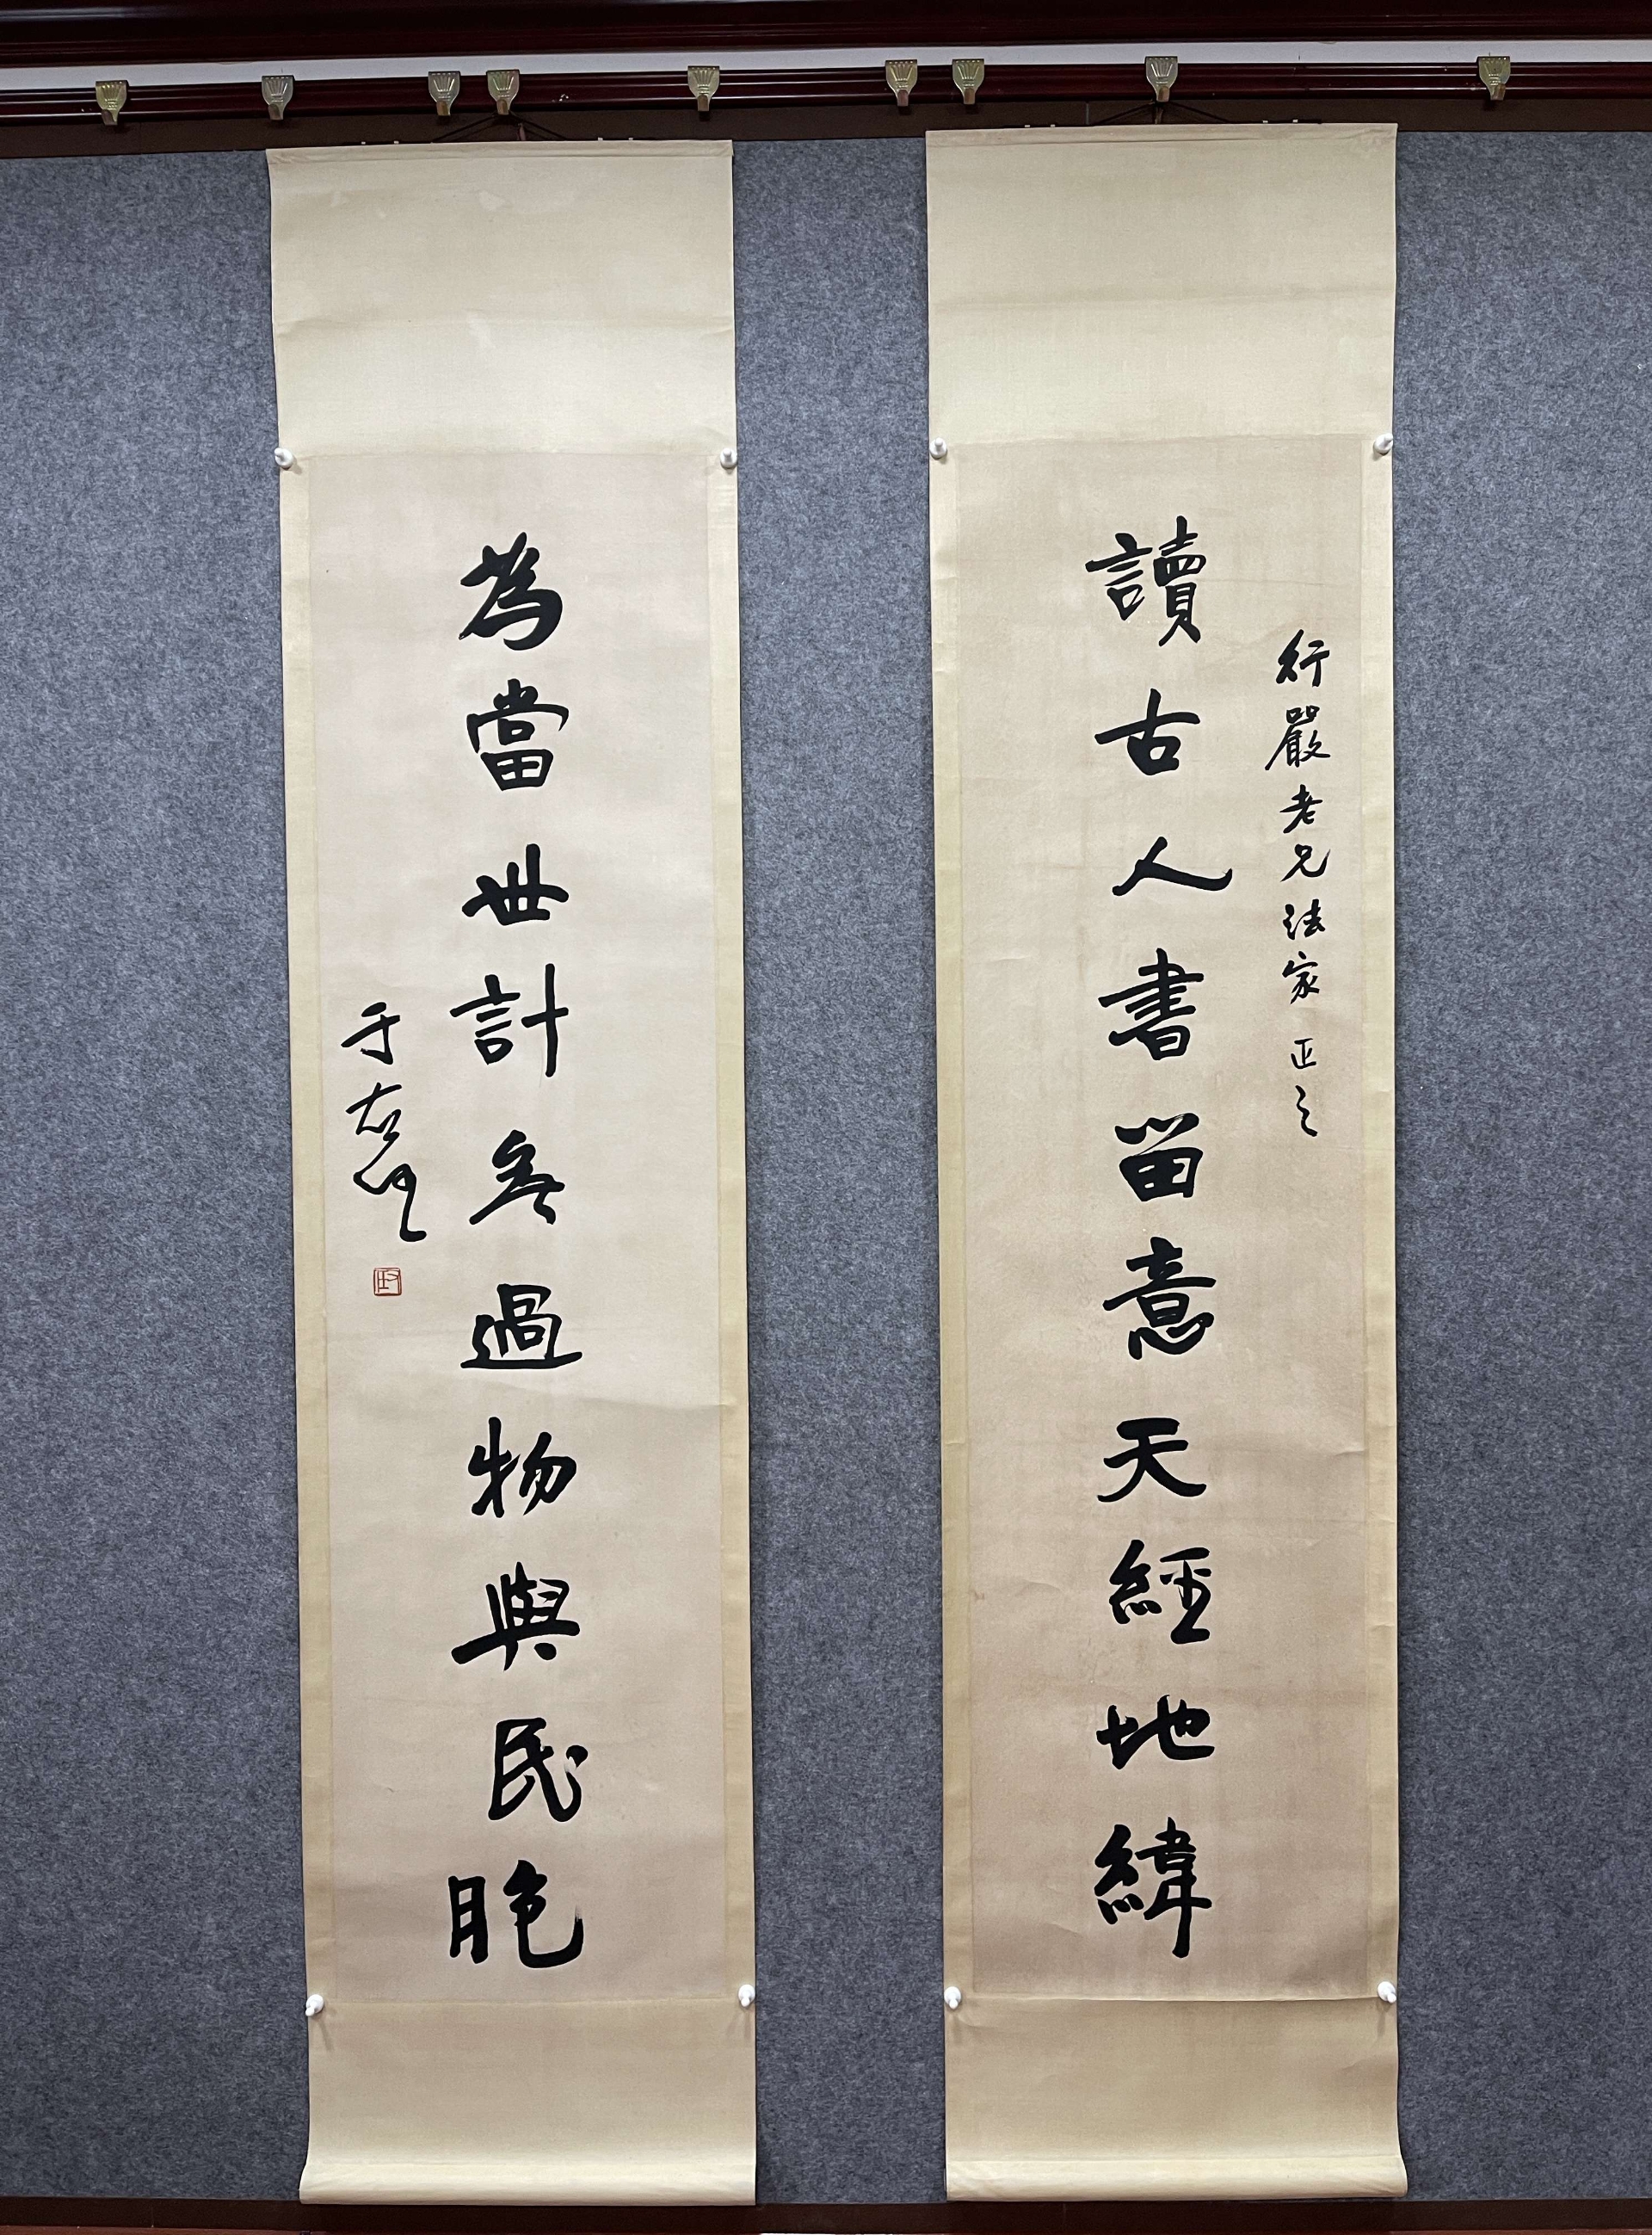 行嚴老兄法家 正之
讀古人書留意天經地緯
為當世計無過物與民胞
于右任
右任